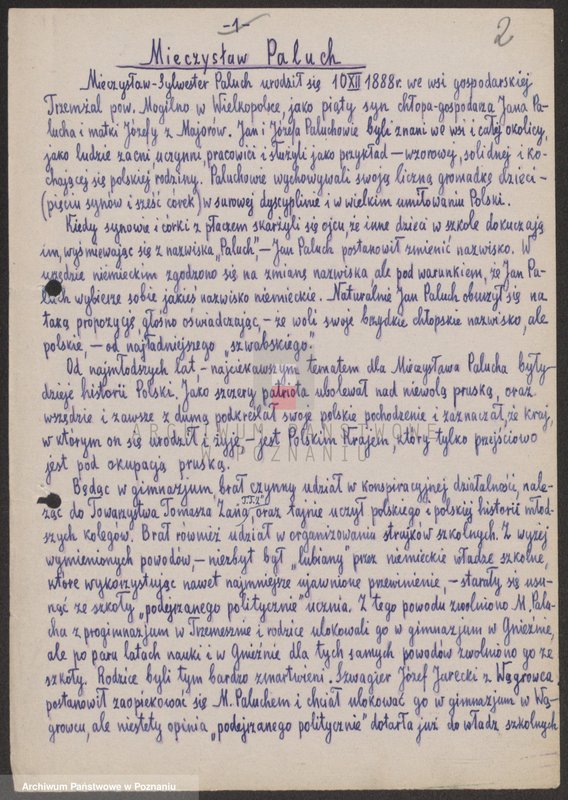 -1-
2
Mieczysław Paluch
Mieczysław-Sylwester Paluch urodził się 10 XII 1888r. we wsi gospodarskiej
Trzemżal pow. Mogilno w Wielkopolsce, jako piąty syn chłopa-gospodarza Jana Pa-
lucha i matki Józefy z Majorów. Jan i Józefa Paluchowie byli znani we wsi i całej okolicy,
jako ludzie zacni uczynni, pracowici i służyli jako przykład — wzorowej, solidnej i ko-
chającej się polskiej rodziny. Paluchowie wychowywali swoją liczną gromadkę dzieci —
(pięciu synów i sześć córek) w surowej dyscyplinie i w wielkim umiłowaniu Polski.
Kiedy synowie i córki z płaczem skarżyli się ojcu, że inne dzieci w szkole dokuczają
im, wyśmiewając się z nazwiska „Paluch", — Jan Paluch postanowił zmienić nazwisko. W
urzędzie niemieckim zgodzono się na zmianę nazwiska ale pod warunkiem, że Jan Pa-
luch wybierze sobie jakieś nazwisko niemieckie. Naturalnie Jan Paluch oburzył się na
taką propozycję, głośno oświadczając, — że woli swoje brzydkie chłopskie nazwisko, ale
polskie, — od najładniejszego „szwabskiego."
Od najmłodszych lat — najciekawszym tematem dla Mieczysława Palucha były
dzieje historii Polski. Jako szczery patriota ubolewał nad niewolą pruską, oraz
wszędzie i zawsze z dumą podkreślał swoje polskie pochodzenie i zaznaczał, że kraj,
w którym on się urodził i żyje — jest Polskim Krajem, który tylko przejściowo
jest pod okupacją pruską.
ARCHIWUM PAŃSTWOWE
W POZNANIU
Będąc w gimnazjum, brał czynny udział w konspiracyjnej działalności, nale-
żąc do Towarzystwa Tomasza Zana „T.T.Z." oraz tajnie uczył polskiego i polskiej historii młod-
szych kolegów. Brał również udział w organizowaniu strajków szkolnych. Z wyżej
wymienionych powodów, — niezbyt był „lubiany" przez niemieckie władze szkolne,
które wykorzystując nawet najmniejsze ujawnione przewinienie, — starały się usu-
nąć ze szkoły „podejrzanego politycznie" ucznia. Z tego powodu zwolniono M. Palu-
cha z progimnazjum w Trzemesznie i rodzice ulokowali go w gimnazjum w Gnieźnie,
ale po paru latach nauki i w Gnieźnie dla tych samych powodów zwolniono go ze
szkoły. Rodzice byli tym bardzo zmartwieni. Szwagier Józef Jurecki z Wągrowca
postanowił zaopiekować się M. Paluchem i chciał ulokować go w gimnazjum w Wą-
growcu, ale niestety opinia „podejrzanego politycznie" dotarła już do władz szkolnych
Archiwum Państwowe w Poznaniu